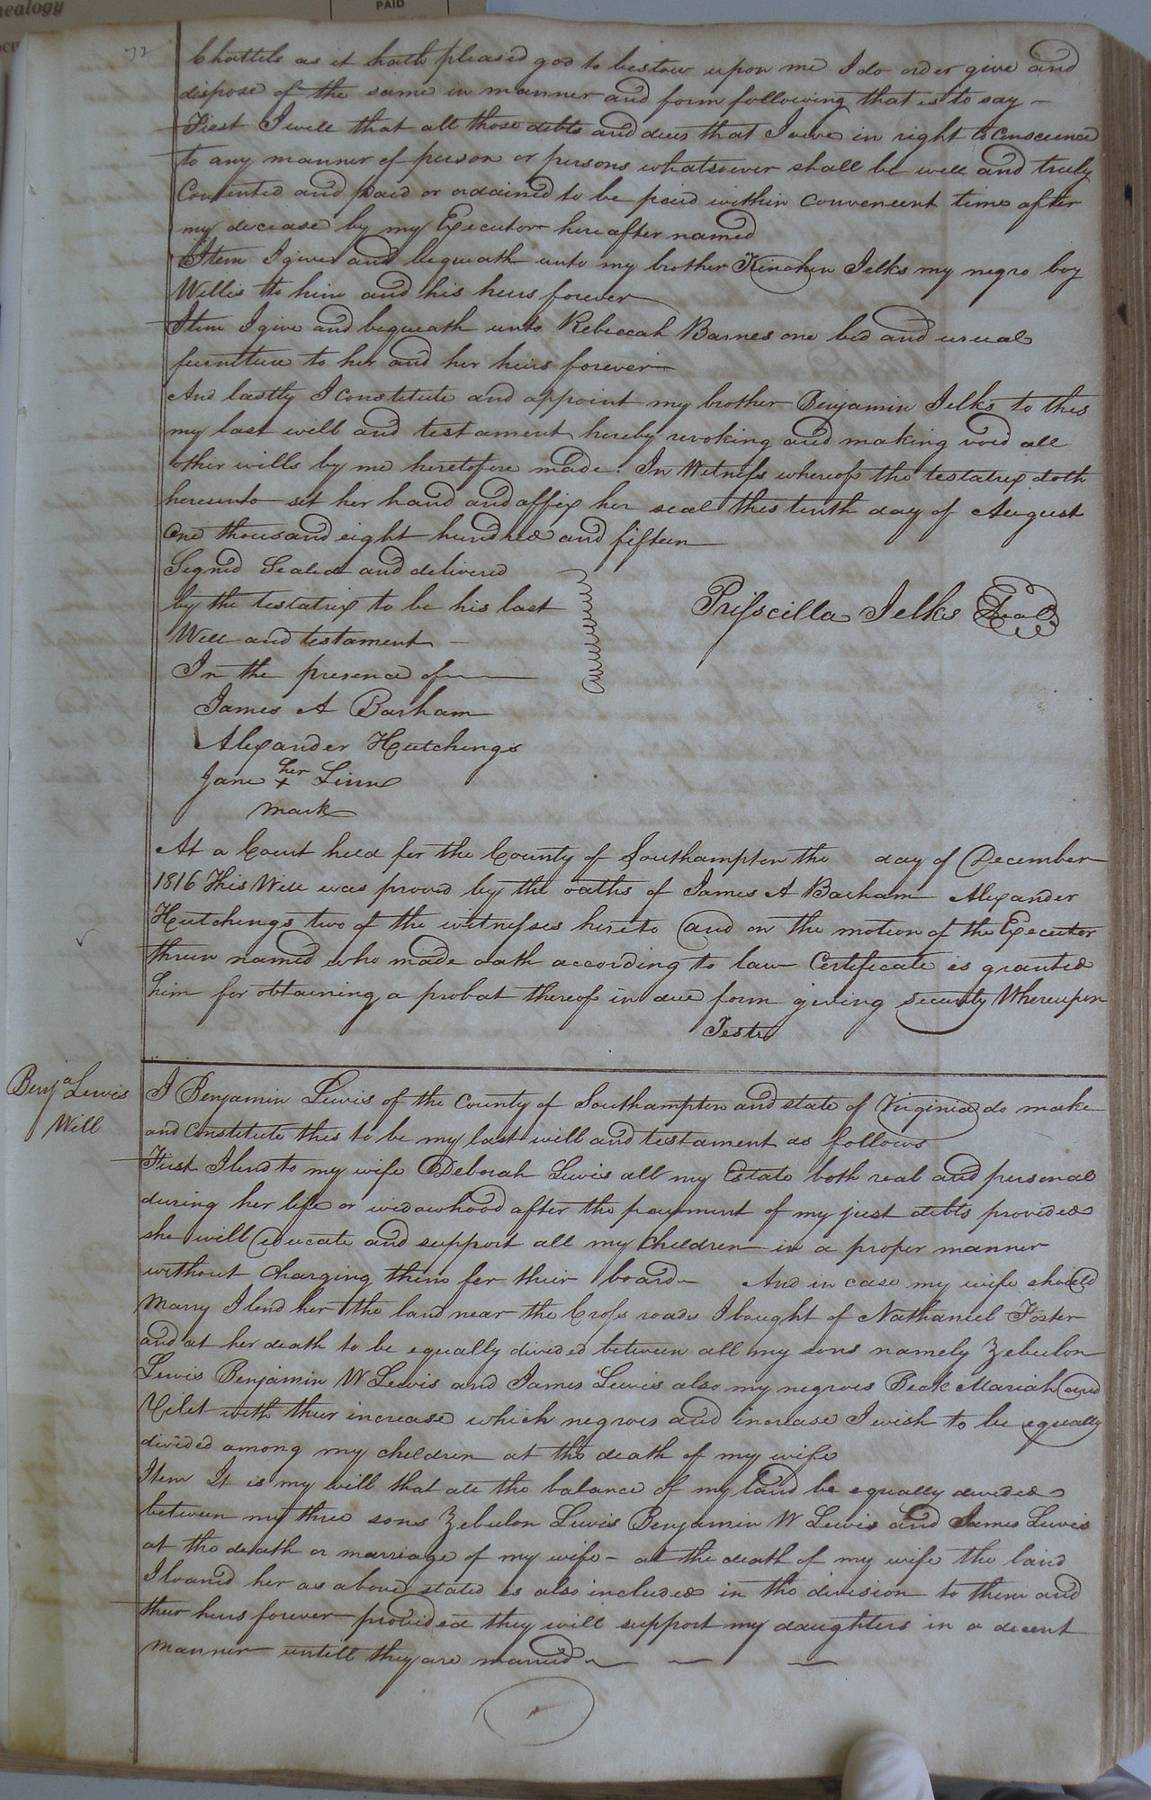 nealogy
PAID
72
Chattels as it hath pleased god to bestow upon me I do order give and
dispose of the same in manner and form following that is to say -
First I will that all those debts and dues that I owe in right & Conscience
to any manner of person or persons whatsoever shall be well and truly
Contented and paid or ordained to be paid within convenient time after
my decease by my Executor hereafter named
Item I give and bequeath unto my brother Kinchen Jelks my negro boy
Willis to him and his heirs forever
Item I give and bequeath unto Rebeccah Barnes one bed and usual
furniture to her and her heirs forever
And lastly I constitute and appoint my brother Benjamin Jelks to this
my last will and testament hereby revoking and making void all
other wills by me heretofore made. In Witness whereof the testatrix doth
hereunto set her hand and affix her seal this tenth day of August
One thousand eight hundred and fifteen
Signed Sealed and delivered
by the testatrix to be his last
Will and testament -
In the presence of
Prisscilla Jelks Seal
James A Barham
Alexander Hutchings
Jane her x Linn
mark
At a Court held for the County of Southampton the day of December
1816 This Will was proved by the oaths of James A Barham Alexander
Hutchings two of the witnesses hereto and on the motion of the Executor
therein named who made oath according to law Certificate is granted
him for obtaining a probat thereof in due form giving security Whereupon
Teste
Benja Lewis
Will
I Benjamin Lewis of the County of Southampton and state of Virginia do make
and constitute this to be my last will and testament as follows
First I lend to my wife Deborah Lewis all my Estate both real and personal
during her life or widowhood after the payment of my just debts provided
she will educate and support all my children in a proper manner
without charging them for their board - And in case my wife should
Marry I lend her the land near the Cross roads I bought of Nathaniel Foster
and at her death to be equally divided between all my sons namely Zebulon
Lewis Benjamin W Lewis and James Lewis also my negroes Beck Mariah and
Vilet with their increase which negroes and increase I wish to be equally
divided among my children at the death of my wife
Item It is my will that all the balance of my land be equally divided
between my three sons Zebulon Lewis Benjamin W Lewis and James Lewis
at the death or marriage of my wife - at the death of my wife the land
I loaned her as above stated is also included in the division to them and
their heirs forever provided they will support my daughters in a decent
manner untill they are married